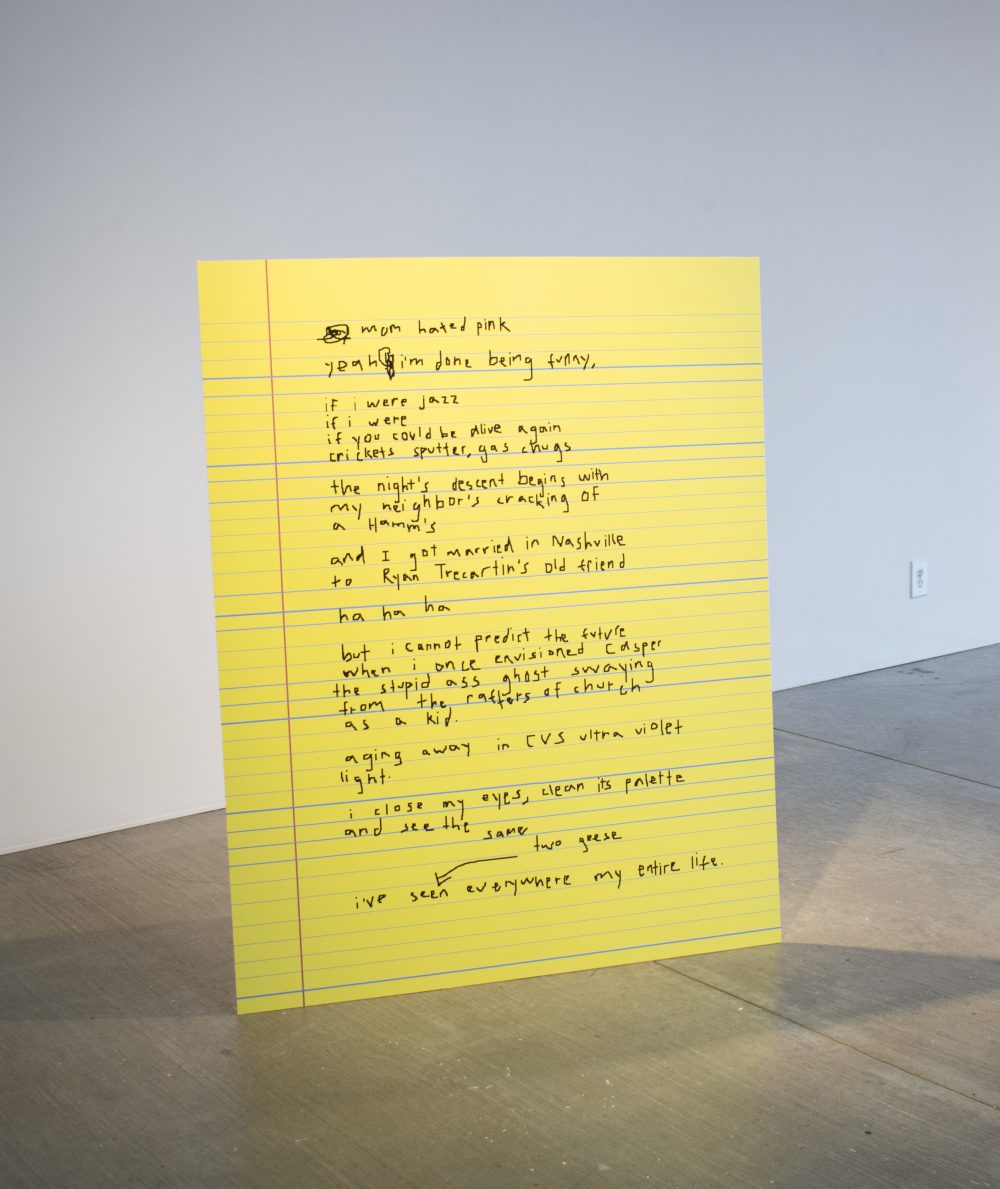 mom hated pink
yeah i'm done being funny,
if i were jazz
if i were
if you could be alive again
crickets sputter, gas chugs
the night's descent begins with
my neighbor's cracking of
a Hamm's
and I got married in Nashville
to Ryan Trecartin's old friend
ha ha ha
but i cannot predict the future
when i once envisioned Casper
the stupid ass ghost swaying
from the rafters of church
as a kid.
aging away in CVS ultra violet
light.
i close my eyes, clean its palette
and see the same
two geese
i've seen everywhere my entire life.